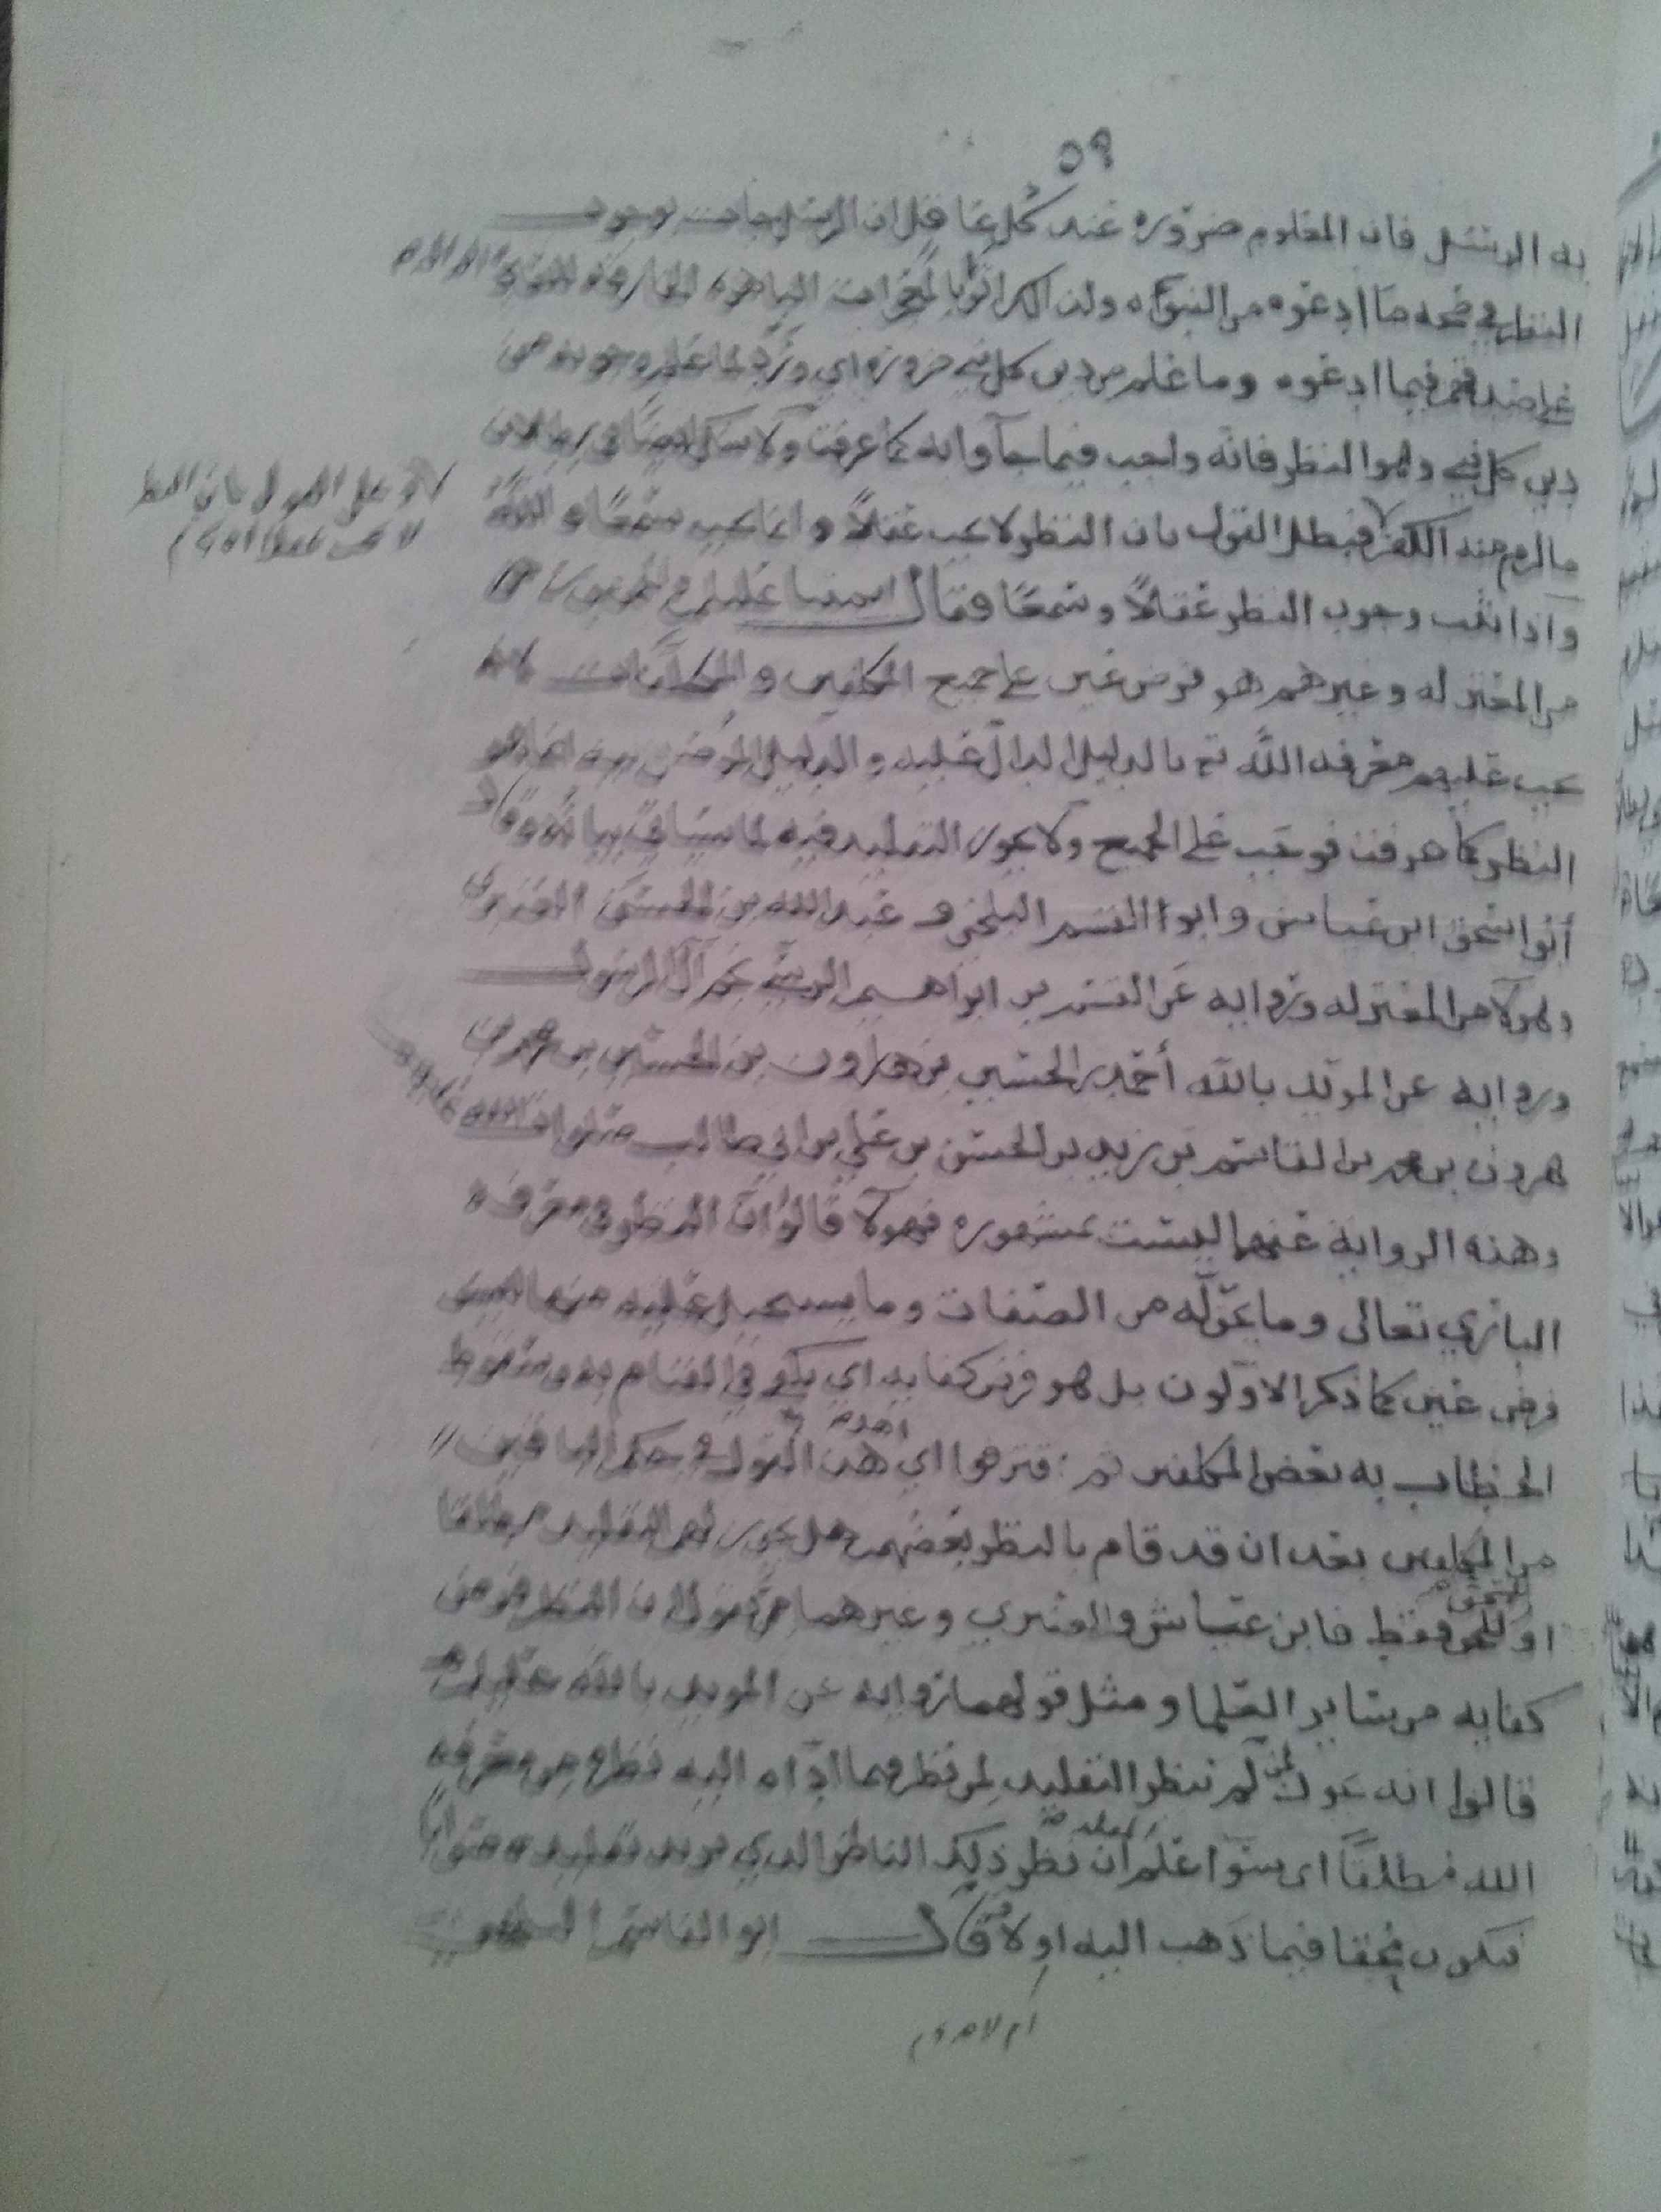 ٥٩
به الرسل فان المعلوم ضرورة عند كل عاقل ان الرسل جات بوجوب
النظر في صحة ما ادعوه من النبوة ولذلك اتوا بالمعجزات الباهره الخارقة
على صدقهم فيما ادعوه وما علم من دين كل نبي ضرورة اي ورد لما علم وجوبه من
دين كل نبي وهو النظر فانه واجب فيما جآوا به كما عرفت ولا شك ايضا في بطلان
ما لزم منه الكفر فبطل القول بان النظر لا يجب عقلاً وانما يجب سمعًا
واذا ثبت وجوب النظر عقلاً وسمعًا فقال ائمتنا عليلم والجمهور
من المعتزله وغيرهم هو فرض عين على جميع المكلفين والمكلفات
يجب عليهم معرفة الله تع بالدليل الدال عليه والدليل الموصل اليه انما هو
النظر كما عرفت فوجب على الجميع ولا يجوز التقليد فيه لما سيأتي بيانه وقال
أبوا اسحق ابن عياش وابوا القسم البلخي و عبدالله بن الحسن العنبري
وهولآ من المعتزله وروايه عن القسم بن ابراهيم الرسي نجم آل الرسول
وروايه عن المويد بالله أحمد بن الحسين بن هارون بن الحسين بن محمد بن
هرون بن محمد بن القاسم بن زيد بن الحسن بن علي بن ابي طالب صلوات الله عليهم
وهذه الرواية عنهما ليست بمشهوره فهولآ قالوا ان النظر في معرفة
الباري تعالى وما يجوز له من الصفات وما يستحيل عليه منها ليس
فرض عين كما ذكر الاولون بل هو فرض كفايه اي يكفي في القيام به وسقوط
الخطاب به بعض المكلفين ثم افترقوا اي اهل هذا القول في حكم الباقين
من المكلفين بعد ان قد قام بالنظر بعضهم هل يجوز لهم التقليد مطلقا
او للمحق فقط فابن عياش والعنبري وغيرهما من يقول ان النظر فرض
كفايه من سائر العلما ومثل قولهما روايه عن المويد بالله عليلم
قالوا انه يجوز لمن لم ينظر التقليد لمن نظر فيما ادّاه اليه نظره من معرفة
الله مطلقًا اي سوآ علم ان نظر ذلك الناظر الذي يريد تقليده صوابًا
فيكون محقا فيما ذهب اليه او لا وقال ابو القاسم البلخي
ام لا